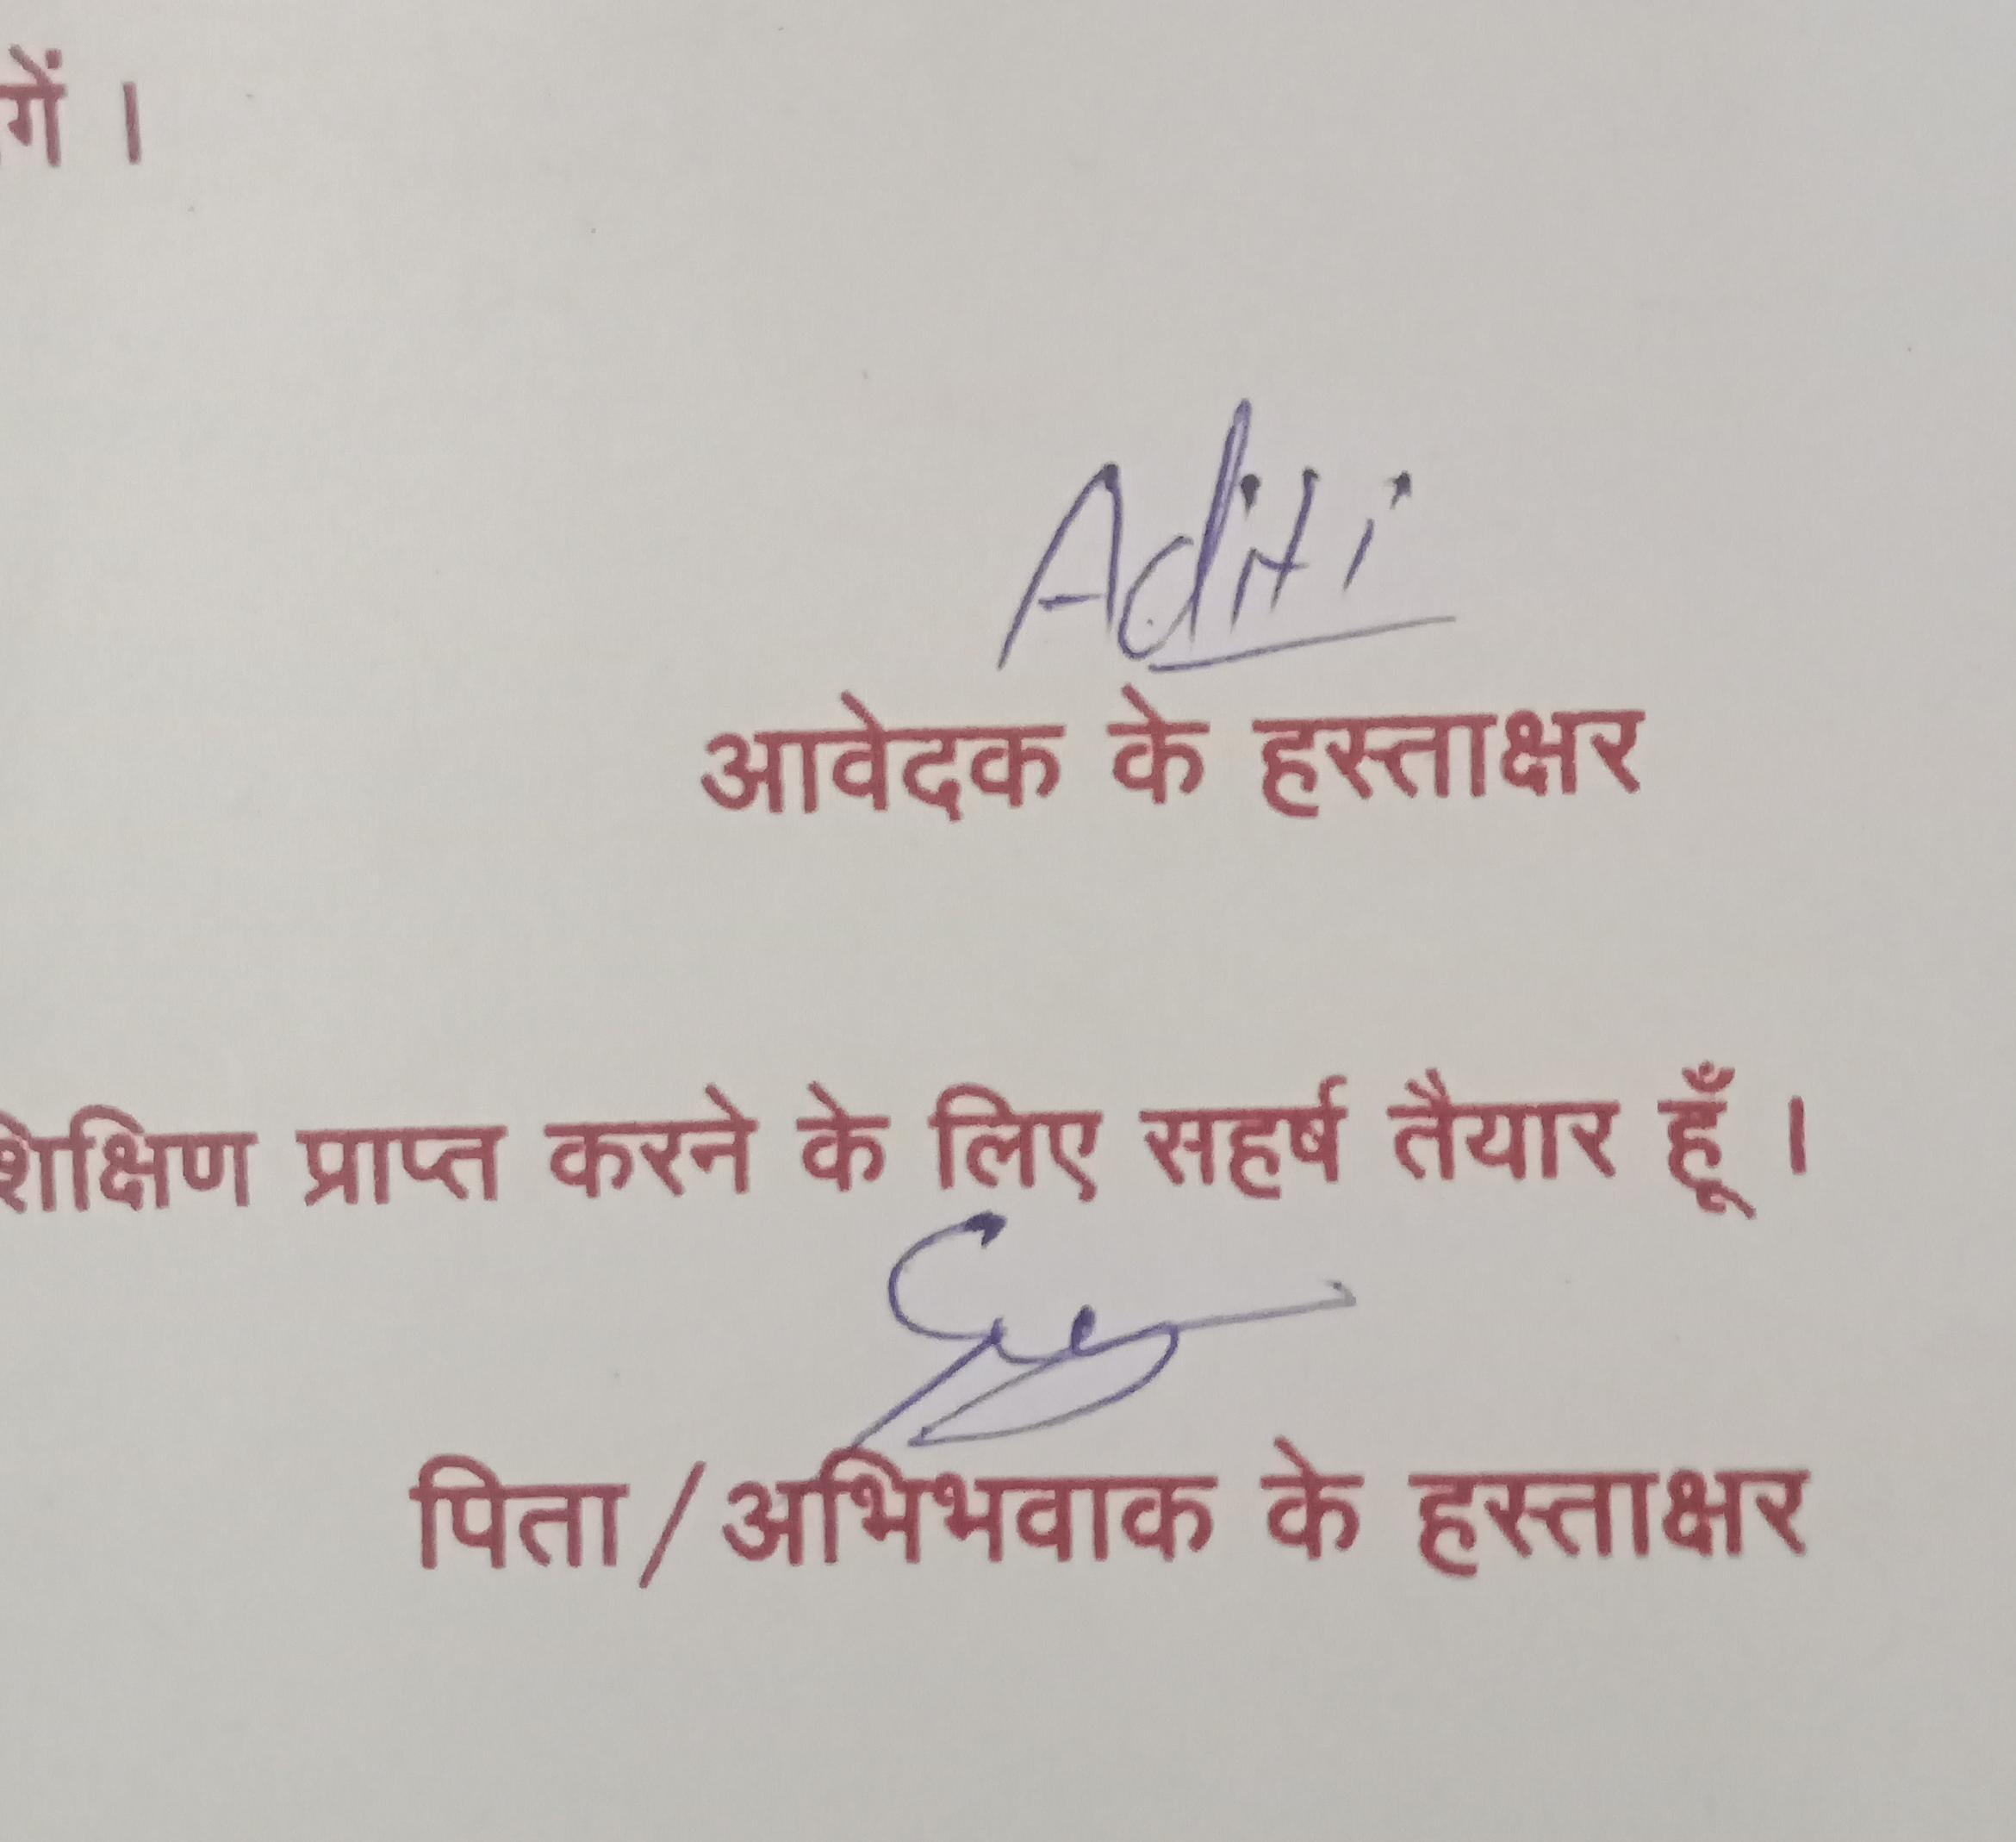 गें ।
Aditi
आवेदक के हस्ताक्षर
शिक्षिण प्राप्त करने के लिए सहर्ष तैयार हूँ ।
पिता/अभिभवाक के हस्ताक्षर